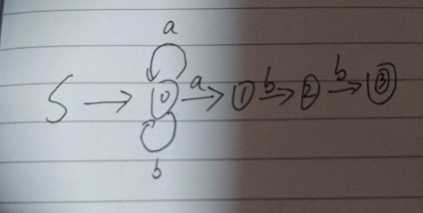 a
S → 0 a → 1 b → 2 b → 3
b